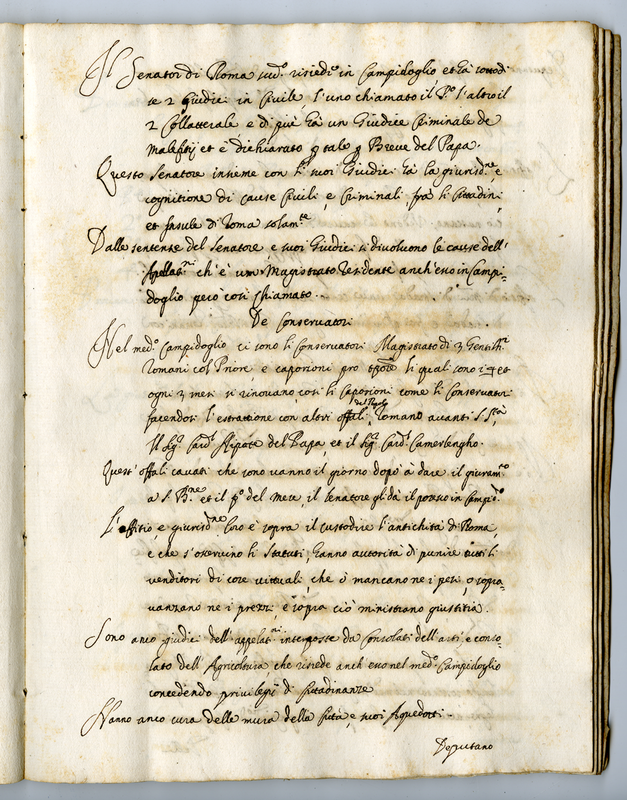 Il Senator di Roma sud.o risied.e in Campidoglio, et hà sottod.
te 2 Giudici in Civile l'uno chiamato il P.o l'altro il
2 Collatterale, e di più hà un Giudice Criminale de
Malefitij et è dichiarato p tale p Breve del Papa.
Questo Senatore insieme con li suoi Giudici hà la giurisd.ne e
cognitione di cause Civili, e Criminali frà li Cittadini
et Insule di Roma solam.te
Dalle sentenze del Senatore e suoi Giudici si divolvono le cause dell'
Apellat.ni ch'è un Magistrato residente anch'esso in Campi-
doglio però così chiamato.
De Conservatori
Nel med.o Campidoglio ci sono li Conservatori Magistrato di 3 Gentilh.i
Romani col Priore, e caporioni pro li quali sono 14 et
ogni 3 mesi si rinovano così li Caporioni come li Conservatori
facendosi l'estrattione con altri offitiali del Popolo Romano avanti S. S.tà,
Il Sig. Card. Nipote del Papa, et il Sig. Card. Camerlengho.
Quest'offitiali cavati che sono vanno il giorno dopò à dare il giuram.to
a S. B.ne et il p.o del mese, il Senatore gli dà il possesso in Campid.o
L'offitio, e giurisd.ne loro è sopra il custodire l'antichità di Roma,
e che s'osservino li Statuti, hanno autorità di punire tutti li
venditori di cose vittuali, che ò mancano ne i pesi, o sopra-
vanzano ne i prezzi, e sopra ciò ministrano giustitia.
Sono anco giudici dell'appelat.ni interposte da Consolati dell'arti, e conso-
lato dell'Agricoltura, che risiede anch'esso nel med.o Campidoglio
concedendo privilegij di Cittadinanze
Hanno anco cura delle mura della Città, e suoi Aquedotti.
Deputano